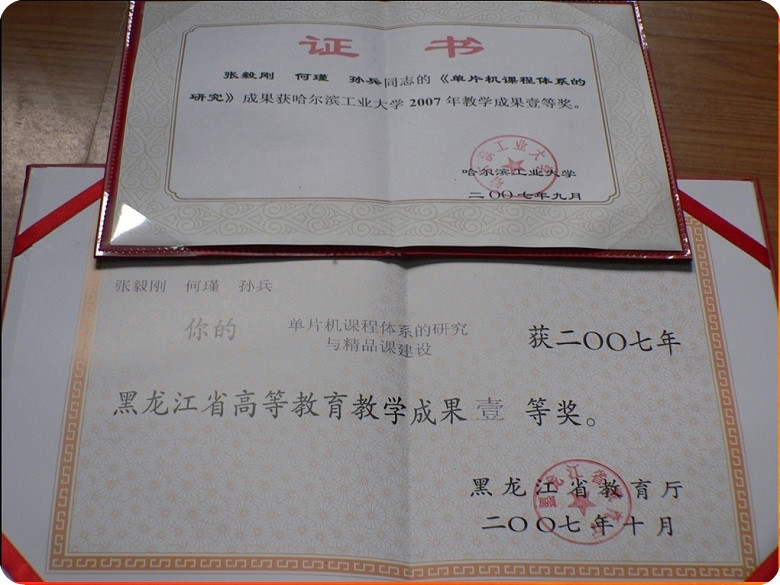 证 书
张毅刚 何瑾 孙兵同志的《单片机课程体系的
研究》成果获哈尔滨工业大学 2007 年教学成果壹等奖。
哈尔滨工业大学
二〇〇七年九月
张毅刚 何瑾 孙兵
你的 单片机课程体系的研究
与精品课建设 获二〇〇七年
黑龙江省高等教育教学成果 壹 等奖。
黑龙江省教育厅
二〇〇七年十月